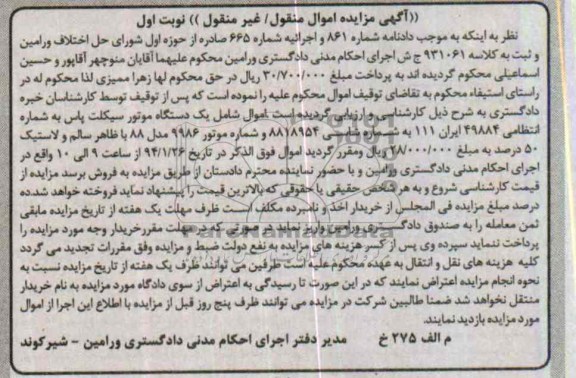 ((آگهی مزایده اموال منقول/ غیر منقول )) نوبت اول
نظر به اینکه به موجب دادنامه شماره ۸۶۱ و اجرائیه شماره ۶۶۵ صادره از حوزه اول شورای حل اختلاف ورامین
و ثبت به کلاسه ۹۳۱۰۶۱ ج ش اجرای احکام مدنی دادگستری ورامین محکوم علیهما آقایان منوچهر آقاپور و حسین
اسماعیلی محکوم گردیده اند به پرداخت مبلغ ۳۰/۷۰۰/۰۰۰ ریال در حق محکوم لها زهرا ممیزی لذا محکوم له در
راستای استیفاء محکوم به تقاضای توقیف اموال محکوم علیه را نموده است که پس از توقیف توسط کارشناسان خبره
دادگستری به شرح ذیل کارشناسی و ارزیابی گردیده است اموال شامل یک دستگاه موتور سیکلت پاس به شماره
انتظامی ۴۹۸۸۴ ایران ۱۱۱ به شماره شاسی ۸۸۱۸۹۵۴ و شماره موتور ۹۹۸۶ مدل ۸۸ با ظاهر سالم و لاستیک
۵۰ درصد به مبلغ ۲۸/۰۰۰/۰۰۰ ریال ومقرر گردید اموال فوق الذکر در تاریخ ۹۴/۱/۲۶ از ساعت ۹ الی ۱۰ واقع در
اجرای احکام مدنی دادگستری ورامین و با حضور نماینده محترم دادستان از طریق مزایده به فروش برسد مزایده از
قیمت کارشناسی شروع و به هر شخص حقیقی یا حقوقی که بالاترین قیمت را پیشنهاد نماید فروخته خواهد شد.ده
درصد مبلغ مزایده فی المجلس از خریدار اخذ و نامبرده مکلف است ظرف مهلت یک هفته از تاریخ مزایده مابقی
ثمن معامله را به صندوق دادگستری ورامین واریز نماید در صورتی که در مهلت مقرر خریدار وجه مورد مزایده را
پرداخت ننماید سپرده وی پس از کسر هزینه های مزایده به نفع دولت ضبط و مزایده وفق مقررات تجدید می گردد
کلیه هزینه های نقل و انتقال به عهده محکوم علیه است طرفین می توانند ظرف یک هفته از تاریخ مزایده نسبت به
نحوه انجام مزایده اعتراض نمایند که در این صورت تا رسیدگی به اعتراض از سوی دادگاه مورد مزایده به نام خریدار
منتقل نخواهد شد ضمنا طالبین شرکت در مزایده می توانند ظرف پنج روز قبل از مزایده با اطلاع این اجرا از اموال
مورد مزایده بازدید نمایند.
م الف ۲۷۵ خ مدیر دفتر اجرای احکام مدنی دادگستری ورامین - شیرکوند